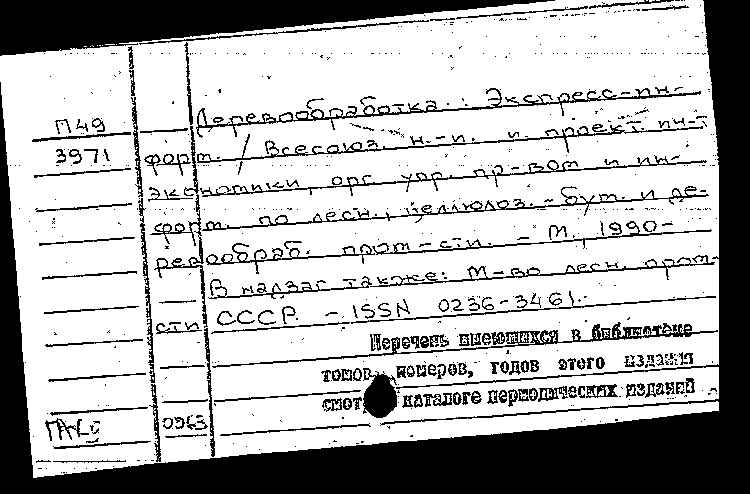 П49
3971
Деревообработка : Экспресс-ин-
форм. / Всесоюз. н.-и. и проект. ин-т
экономики, орг. упр. пр-вом и ин-
форм. по лесн., целлюлоз.-бум. и де-
ревообраб. пром-сти. - М., 1990-
В надзаг. также: М-во лесн. пром-
сти СССР. - ISSN 0236-3461.
Перечень имеющихся в библиотеке
томов, номеров, годов этого издания
смот каталоге периодических изданий
0963